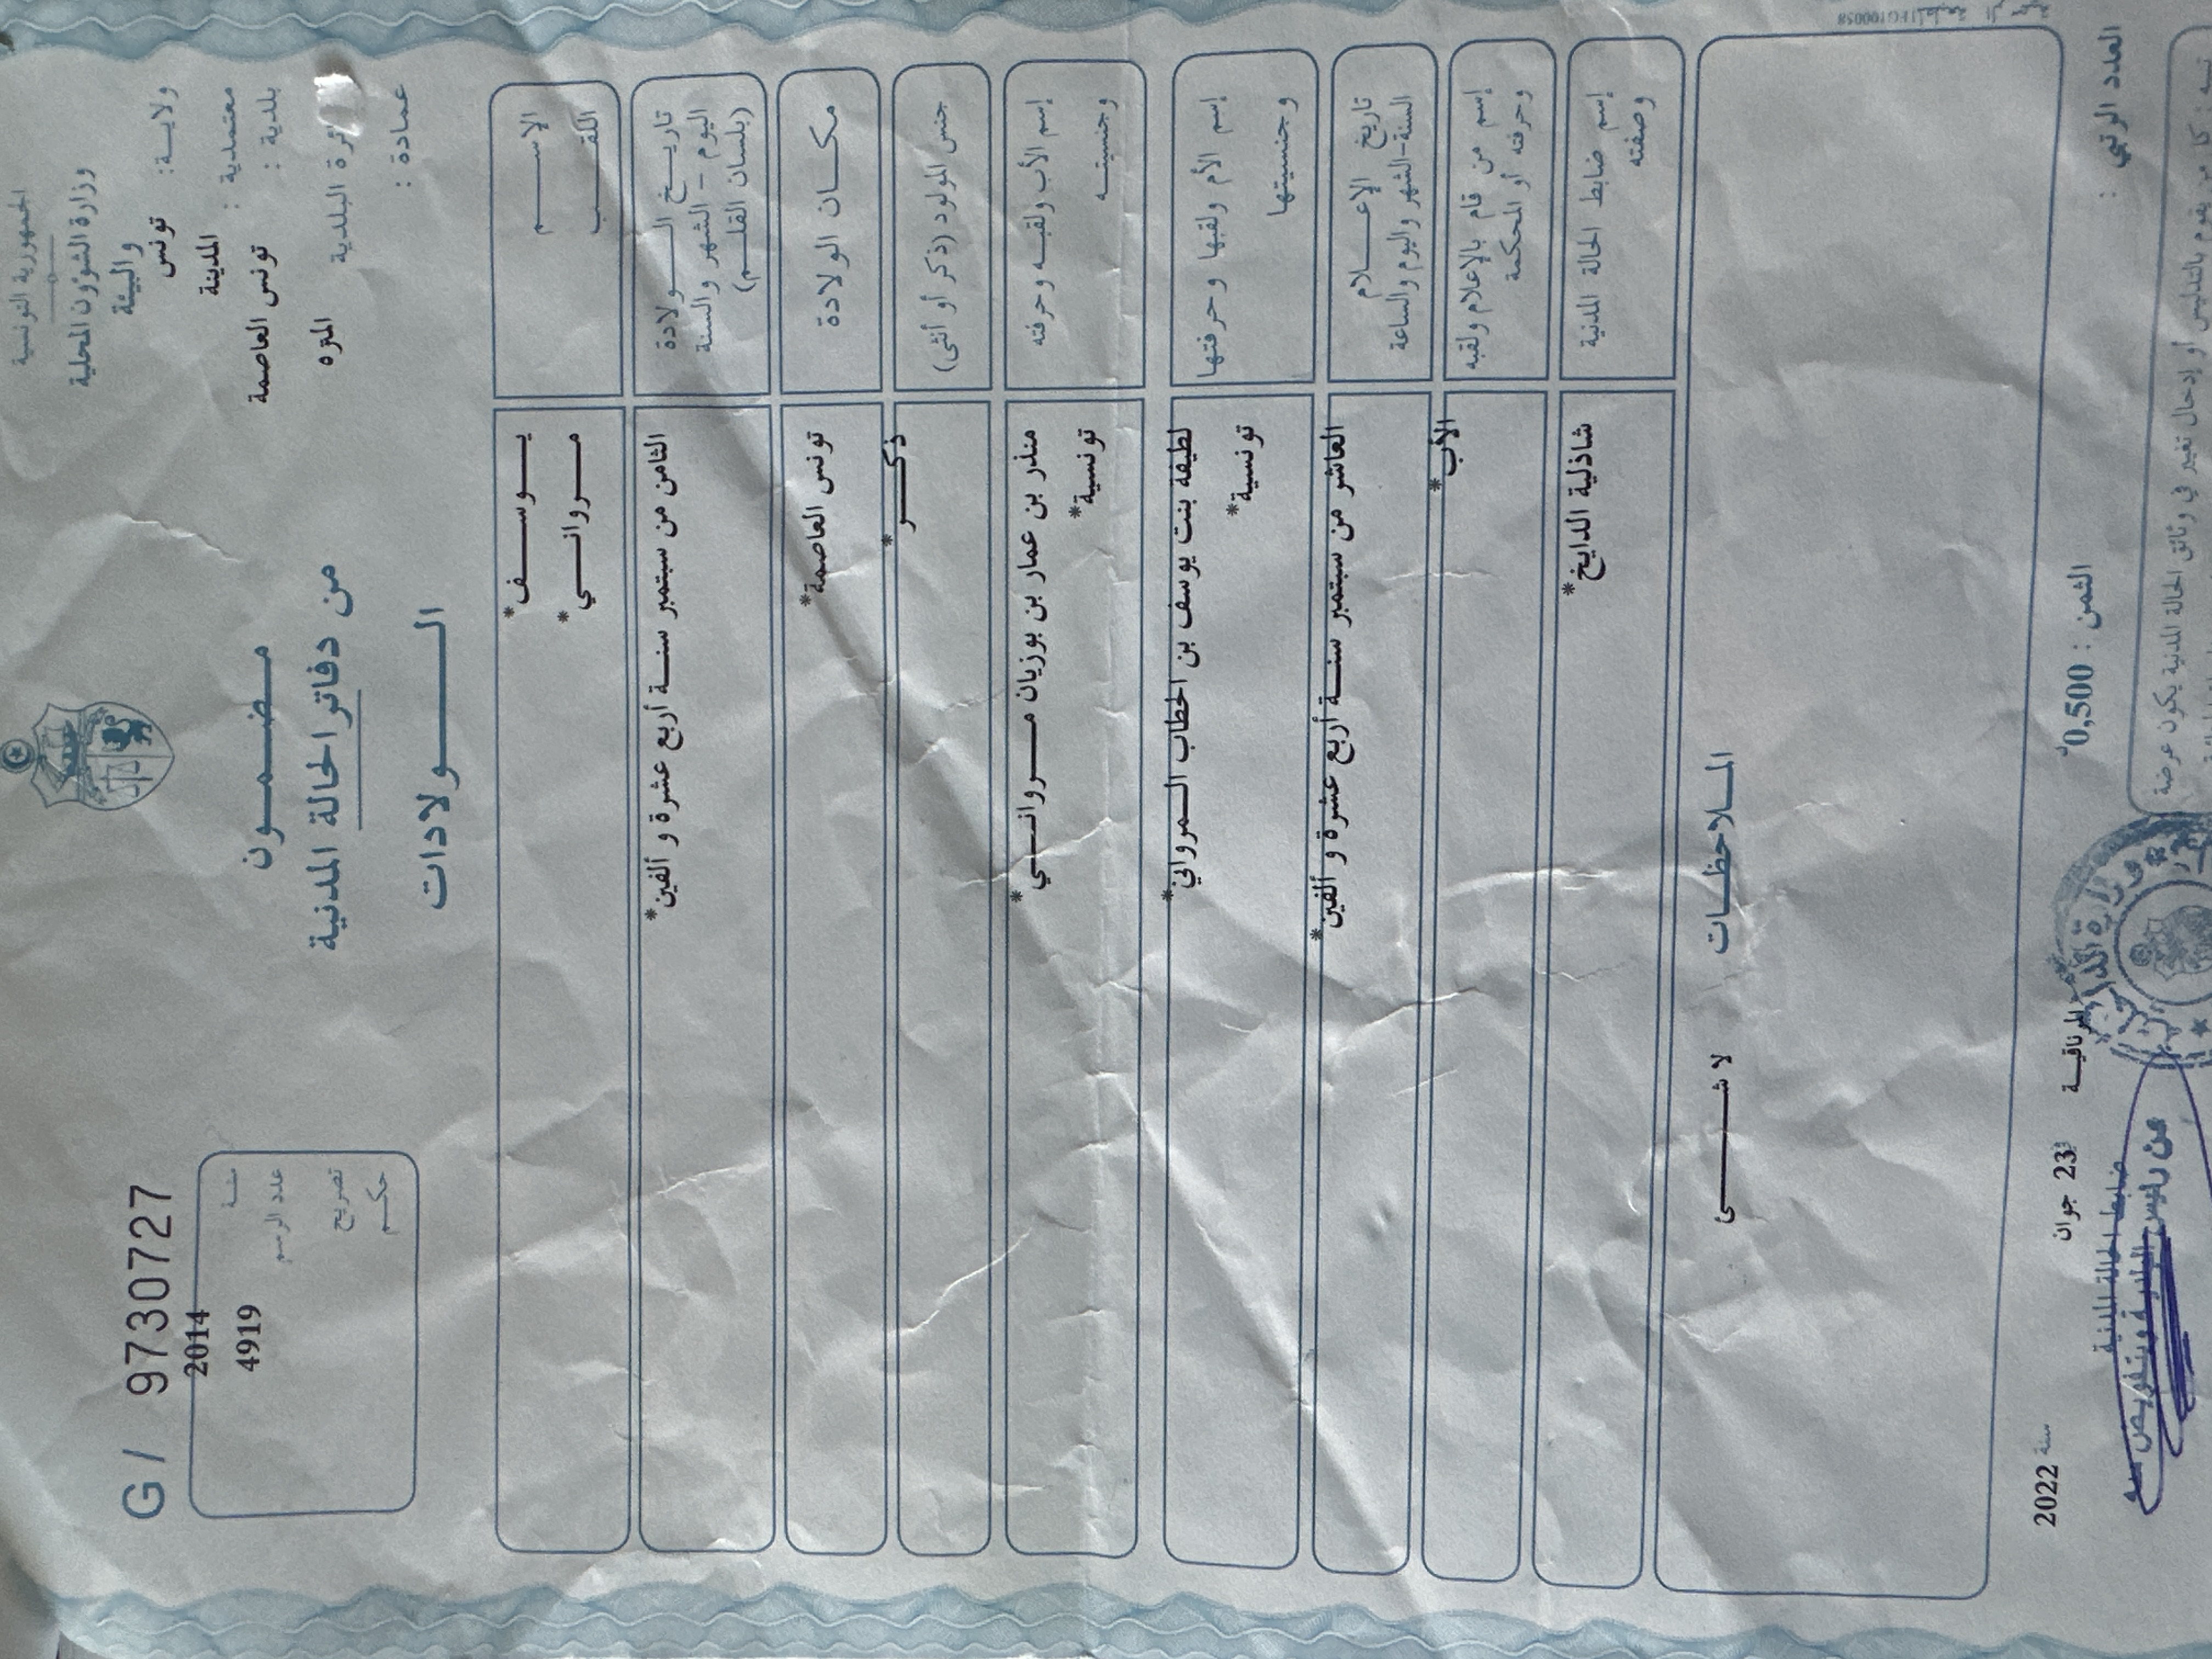 الجمهورية التونسية
وزارة الشؤون المحلية
والبيئة
ولاية: تونس
معتمدية : المدينة
بلدية : تونس العاصمة
البلدية المنزه
عمادة :
G / 9730727
سنة 2014
عدد الرسم 4919
تصريح
حكم
مضمون
من دفاتر الحالة المدنية
الولادات
الاسم يوسف*
اللقب مرواني*
تاريخ الولادة
اليوم - الشهر والسنة
(بلسان القلم)
الثامن من سبتمبر سنة أربع عشرة و ألفين*
مكان الولادة
تونس العاصمة*
جنس المولود (ذكر أو أنثى)
ذكر*
إسم الأب ولقبه وحرفته
وجنسيته
منذر بن عمار بن بوزيان مرواني*
تونسية*
إسم الأم ولقبها وحرفتها
وجنسيتها
لطيفة بنت يوسف بن الحطاب المرواني*
تونسية*
تاريخ الإعلام
السنة-الشهر واليوم والساعة
العاشر من سبتمبر سنة أربع عشرة و ألفين*
إسم من قام بالإعلام ولقبه
وحرفته أو المحكمة
الأب*
إسم ضابط الحالة المدنية
وصفته
شاذلية الدايخ*
الملاحظات
لا شئ
العدد الرتبي :
الثمن : 0,500
المرناقية 23 جوان سنة 2022
ضابط الحالة المدنية
عن رئيس البلدية وبتفويض منه